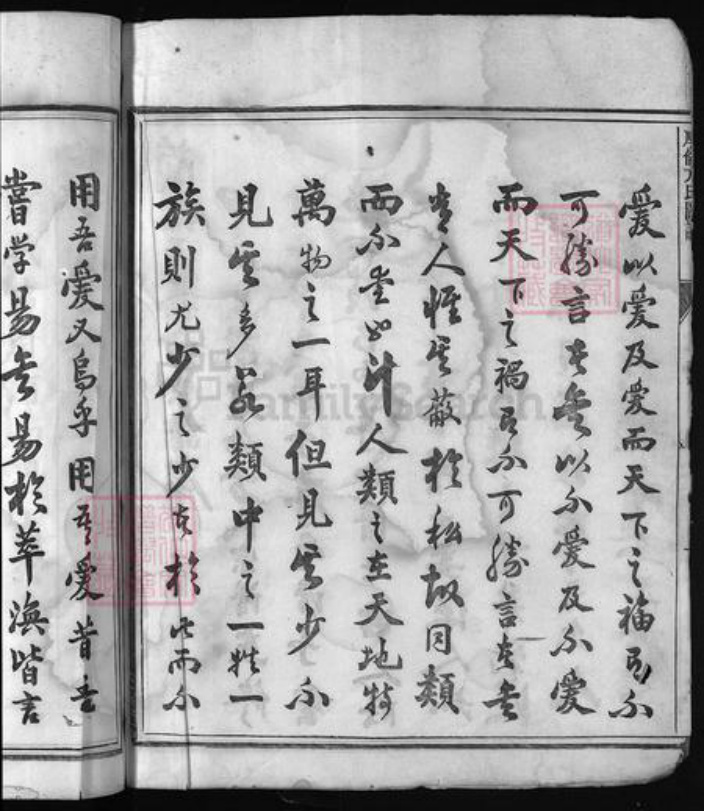 愛以愛及愛而天下之福有不
可勝言者矣以不愛及不愛
而天下之禍有不可勝言者矣
人惟其蔽於私故同類
而不計人類之在天地特
萬物之一耳但見其少不
見其多若類中之一姓一
族則尤少之少者於此而不
用吾愛又烏乎用吾愛昔吾
嘗学易矣易於萃渙皆言
FamilySearch